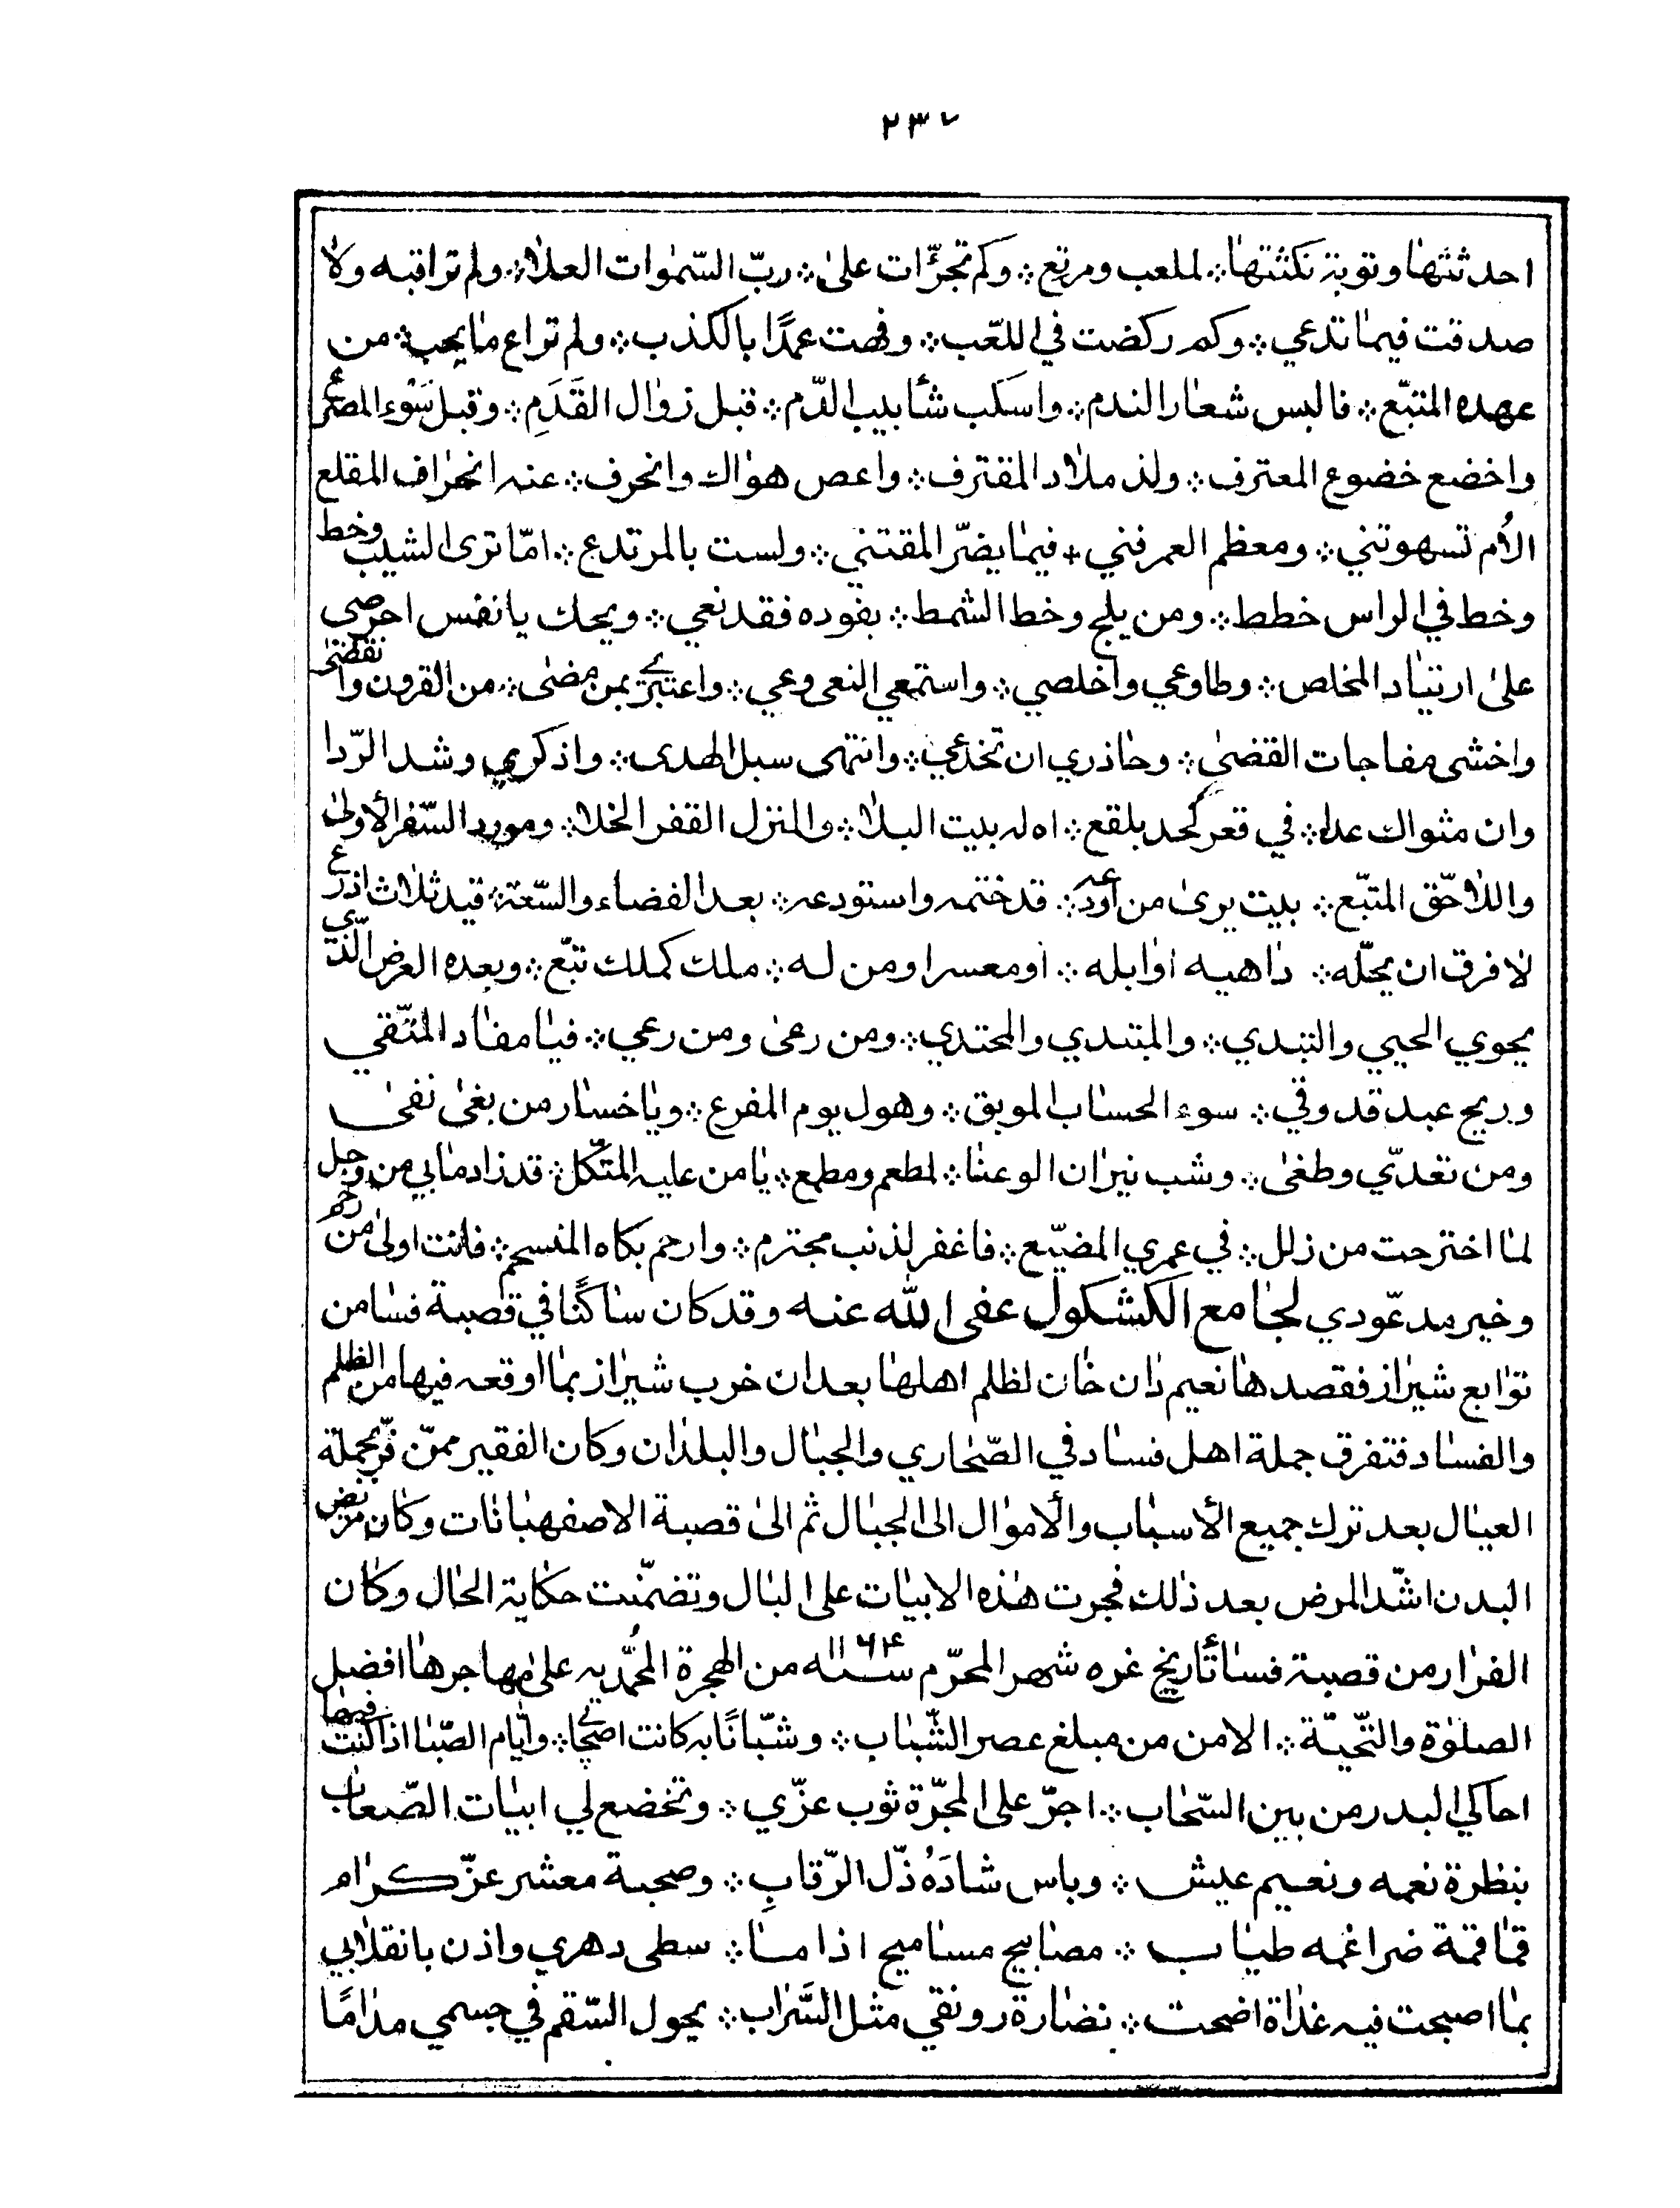 ٢٣٧
احدثتها وتوبة نكثتها ⁘ لملعب ومرتع ⁘ وكم تجرّأت على ⁘ ربّ السّموات العلا ⁘ ولم تراقبه ولا
صدقت فيما تدعي ⁘ وكم ركضت في اللعّب ⁘ وفهت عمدًا بالكذب ⁘ ولم تراع ما يجب ⁘ من
عهده المتبّع ⁘ فالبس شعار الندم ⁘ واسكب شأبيب الدّم ⁘ قبل زوال القَدَمِ ⁘ وقبل سَوْء المصرع
واخضع خضوع المعترف ⁘ ولذ ملاد المقترف ⁘ واعص هواك وانحرف ⁘ عنه انحراف المقلع
الأم تسهوتني ⁘ ومعظم العمر فني + فيما يضرّ المقتني ⁘ ولست بالمرتدع ⁘ امّا ترى الشيب وخط
وخط في الراس خطط ⁘ ومن يلج وخط الشمط ⁘ بفوده فقد نعي ⁘ ويحك يا نفس احرصى
على ارتياد المخلص ⁘ وطاوعي واخلصي ⁘ واستمعي النعى وعي ⁘ واعتبري بمن مضى ⁘ من القرون وانقضى
واخشى مفاجات القضى ⁘ وحاذري ان تخدعي ⁘ وانتهى سبل الهدى ⁘ واذكري وشد الرّدا
وان مثواك عدا ⁘ في قعر لحد بلقع ⁘ اه له بيت البلا ⁘ والمنزل القفر الخلا ⁘ ومورد السّفر الأولى
واللاحّق المتبّع ⁘ بيت يرى من أودعه ⁘ قد ختمه واستودعه ⁘ بعد الفضاء والسّعة ⁘ قيد ثلاث اذرع
لا فرق ان يحلّه ⁘ داهيه اوابله ⁘ أو معسر او من له ⁘ ملك كملك تبّع ⁘ وبعده العرض الّذي
يحوي الحيي والتبدي ⁘ والمبتدي والمحتدي ⁘ ومن رعى ومن رعي ⁘ فيا مفاد المتّقي
وربح عبد قد وقي ⁘ سوء الحساب الموبق ⁘ وهول يوم المفرع ⁘ ويا خسار من بغى نفى
ومن تعدّي وطغى ⁘ وشب نيران الوعنا ⁘ لمطعم ومطمع ⁘ يا من عليه المتّكل ⁘ قد زاد ما بي من وجل
لما اخترحت من زلل ⁘ في عمري المضيّع ⁘ فاغفر لذنب مجترم ⁘ وارحم بكاه المنسجم ⁘ فانت اولى من رحم
وخير مدعّودي لجامع الكشكول عفى الله عنه وقد كان ساكنًا في قصبة فسا من
توابع شيراز فقصدها نعيم دان خان لظلم اهلها بعد ان خرب شيراز بما اوقعه فيها من الظلم
والفساد فتفرق جملة اهل فساد في الصّحاري والجبال والبلدان وكان الفقير ممّن فرّ بجملة
العيال بعد ترك جميع الأسباب والأموال الى الجبال ثم الى قصبة الاصفهبانات وكان مرنض
البدن اشّد المرض بعد ذلك فجرت هذه الابيات على البال وتضمّنت حكاية الحال وكان
الفرار من قصبة فسا تأريخ غره شهر المحرّم سنه ١١٦٤ من الهجرة المحُمّديه على مهاجرها افضل
الصلوة والتّحيّة ⁘ الا من من مبلغ عصر الشّباب ⁘ وشبّانًا به كانت اصحابي ⁘ وأيّام الصّبا اذ كنت فيها
احاكي البدر من بين السّحاب ⁘ اجرّ على المجرّة ثوب عزّي ⁘ وتخضع لي ابيات الصّعاب
بنظرة نعمه ونعيم عيش ⁘ وباس شادَهُ ذّل الرّقابِ ⁘ وصحبة معشر عزّ كرام
قماقمة ضراغمه طياب ⁘ مصابيح مساميح اذا ما ⁘ سطى دهري واذن بانقلابي
بما اصبحت فيه غداة اضحت ⁘ نضارة رونقي مثل السَّراب ⁘ يحول السّقم في جسمي مدامًا